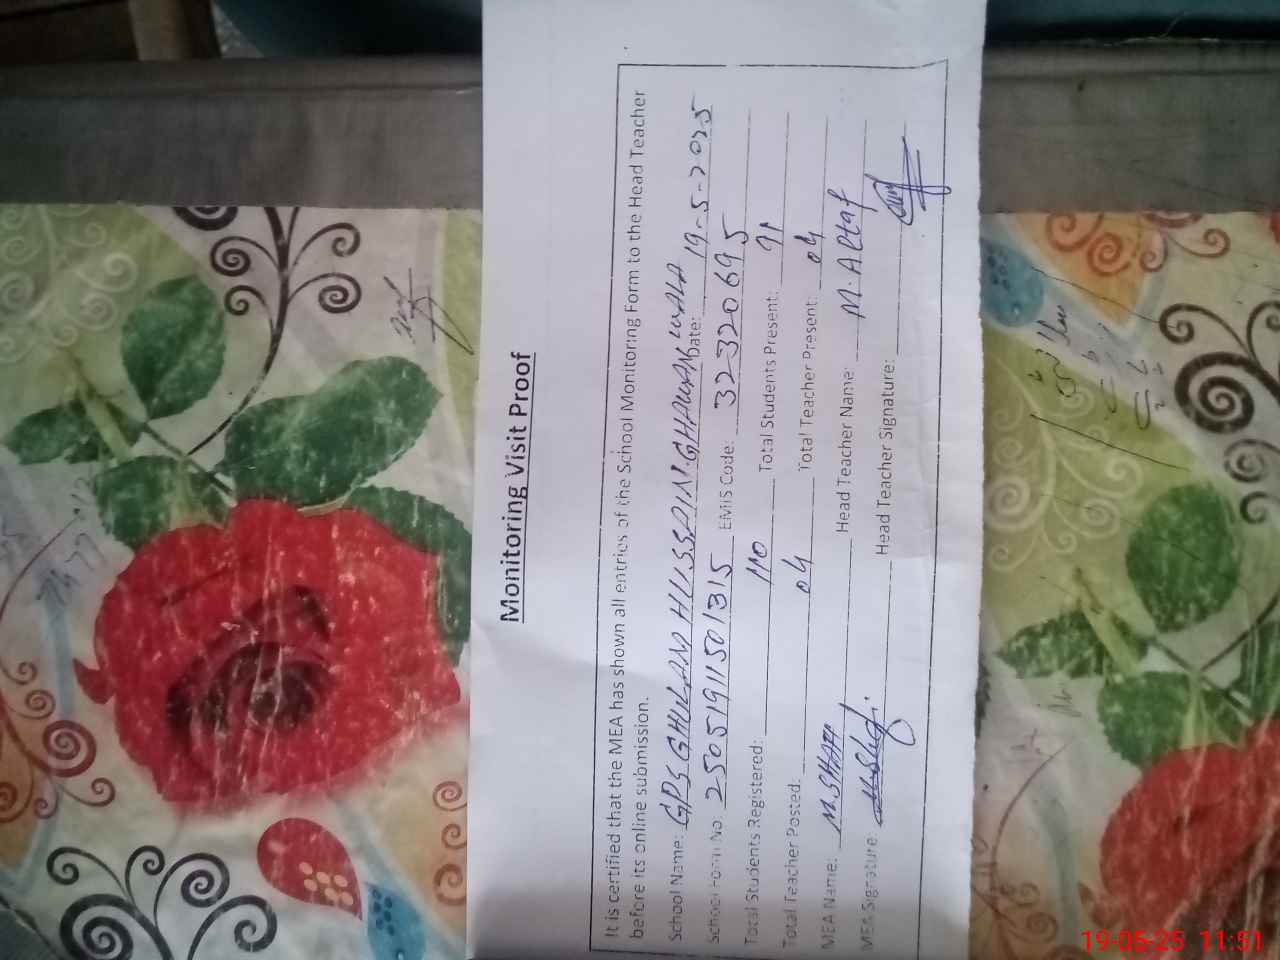 Monitoring Visit Proof
It is certified that the MEA has shown all entries of the School Monitoring Form to the Head Teacher
before its online submission.
School Name: GPS GHULAM HUSSAIN GHAWAN WALA Date: 19-5-2025
School Form No. 25051911501315 EMIS Code: 32320695
Total Students Registered: 110 Total Students Present: 91
Total Teacher Posted: 04 Total Teacher Present: 04
MEA Name: M. SHAFI Head Teacher Name: M. Altaf
MEA Signature: Head Teacher Signature:
19-05-25 11:51